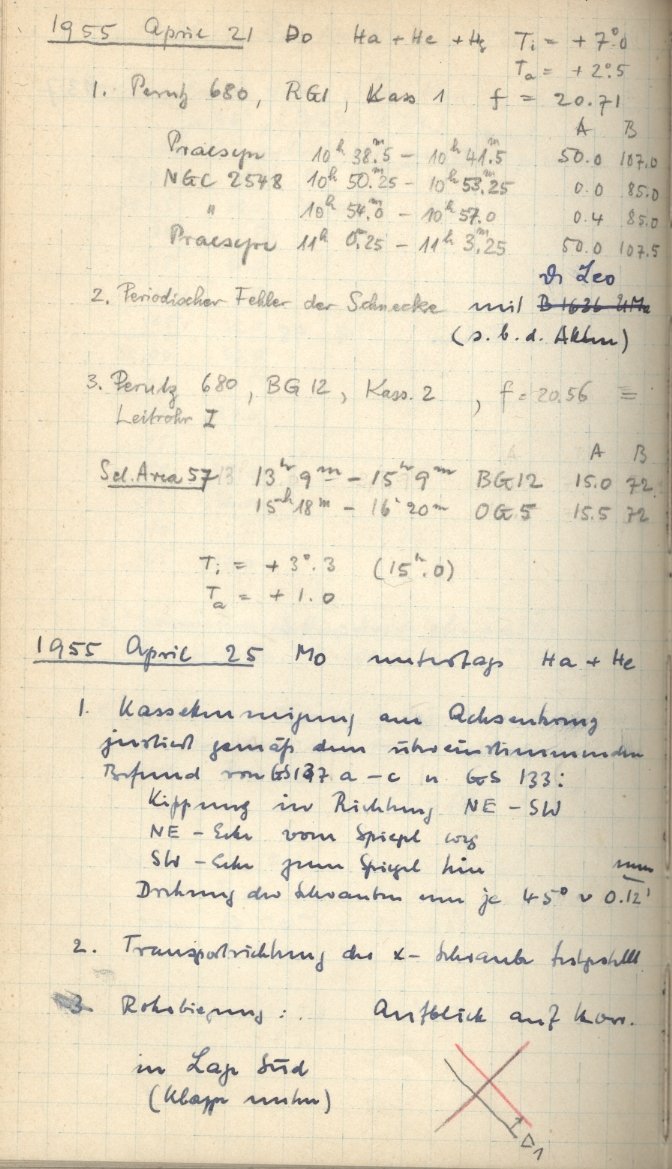 1955 April 21 Do Ha + He + Hg Ti = + 7°.0
Ta = + 2°.5
1. Perutz 680, RG1, Kass 1 f = 20.71
A B
Praesepe 10h 38m.5 – 10h 41m.5 50.0 107.0
NGC 2548 10h 50m.25 – 10h 53m.25 0.0 85.0
" 10h 54m.0 – 10h 57.0 0.4 85.0
Praesepe 11h 0.25 – 11h 3m.25 50.0 107.5
Leo
2. Periodischer Fehler der Schnecke mit
(s. b. d. Akten)
3. Perutz 680, BG 12, Kass. 2, f = 20.56 =
Leitrohr I
A B
Sel. Area 57 13h 9m – 15h 9m BG 12 15.0 72
15h 18m – 16h 20m OG 5 15.5 72
Ti = + 3°.3 (15h.0)
Ta = + 1.0
1955 April 25 Mo untertags Ha + He
1. Kassettenneigung am Achsenkreuz
justiert gemäß dem übereinstimmenden
Befund von GS 137 a – c u GS 133:
Kippung in Richtung NE – SW
NE – Ecke vom Spiegel weg
SW – Ecke zum Spiegel hin
Drehung der Schrauben um je 45° ∨ 0.12 mm
2. Transportrichtung der x – Schraube festgestellt
3 Rohrbiegung: Aufblick auf Korr.
in Lage Süd
(Klappe unten)
Δ1